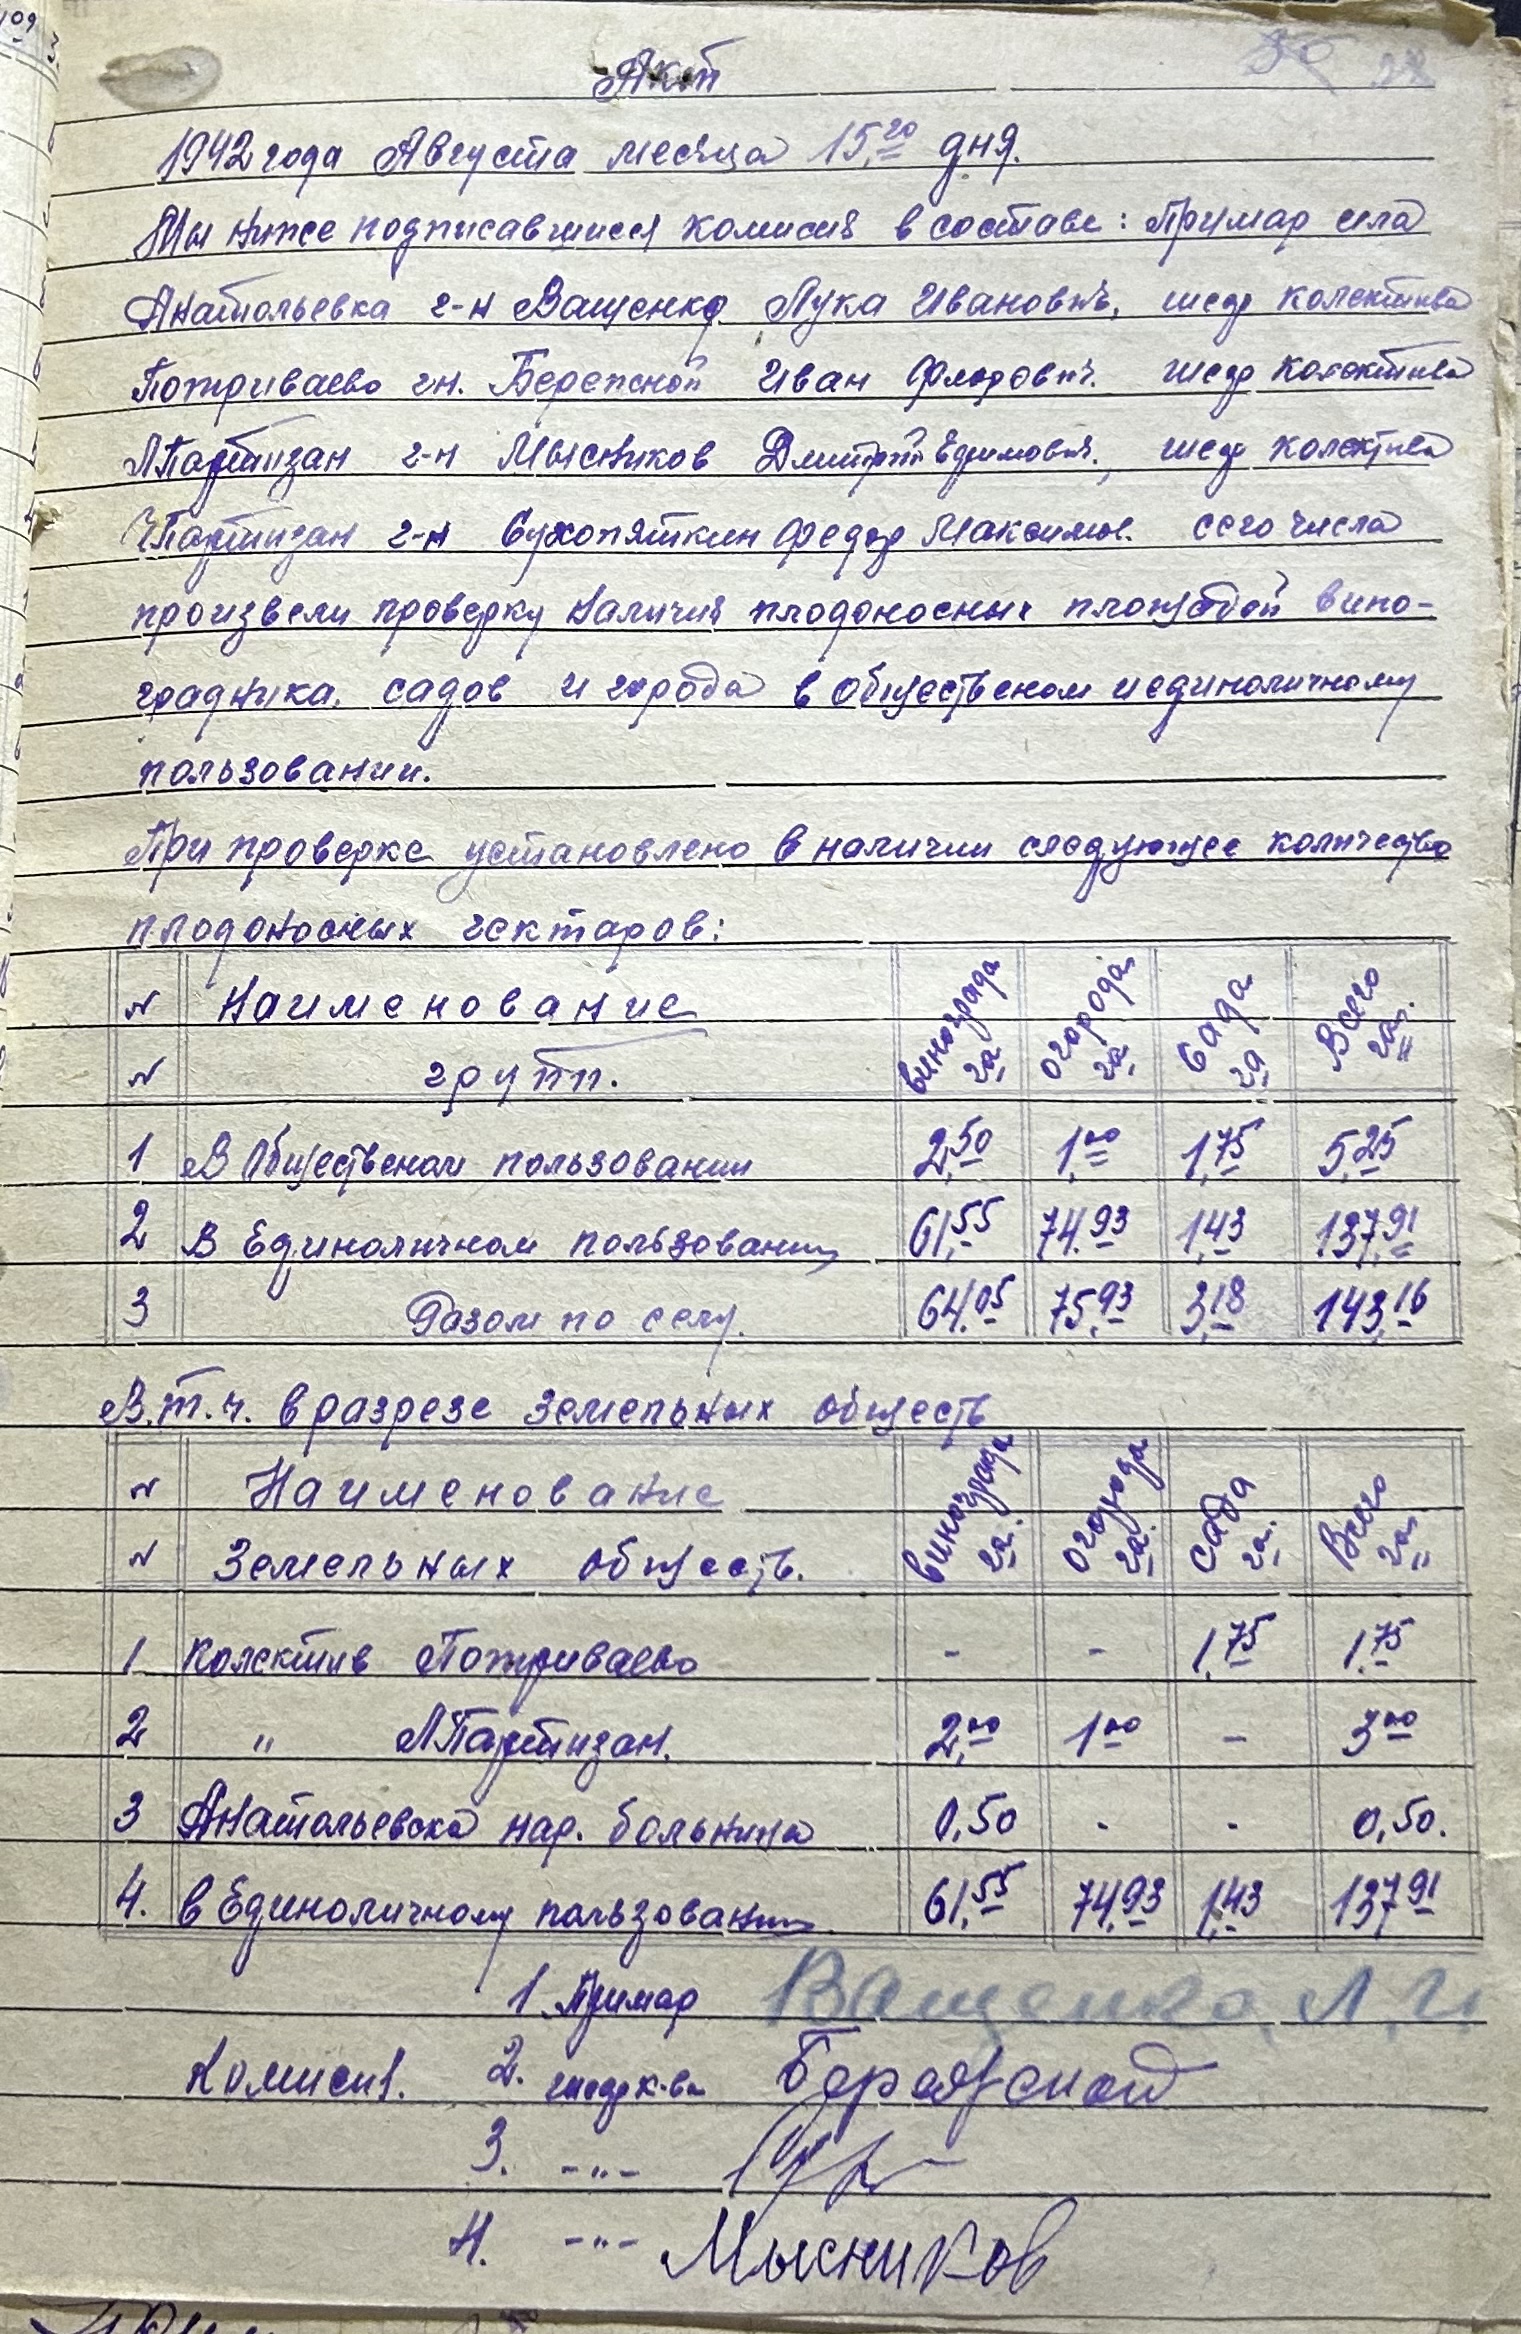 Акт
1942 года Августа месяца 15,го дня.
Мы ниже подписавшиеся комисия в составе: Примар села
Анатольевка г-н Ващенко Лука Иванович, шеф колектива
Потриваево гн. Бережной Иван Флорович. шеф колектива
ЛПартизан г-н Мысников Дмитрий Ефимович., шеф колектива
ЧПартизан г-н Сухопяткин Федор Максимов. сего числа
произвели проверку наличия плодоносных площадей вино-
градника, садов и города в общественом и единоличному
пользовании.
При проверке установлено в наличии следующее количество
плодоносных гектаров:
N Наименование винограда огорода Сада Всего
N групп. га га, га, га,,
1 В Общественом пользовании 2,50 1,00 1,75 5,25
2 В Единоличном пользовании 61,55 74.93 1,43 137,91
3 Разом по селу. 64.05 75,93 3,18 143,16
В.т.ч. в разрезе земельных обществ
N Наименование винограда огорода сада Всего
N Земельных обществ. га. га, га, га,,
1 Колектив Потриваево - - 1,75 1.75
2 " ЛПартизан. 2,00 1 00 - 3 00
3 Анатольевска нар. больница 0.50 - - 0,50.
4. в Единоличному пользовании 61,55 74,93 1,43 137 91
1. Примар Ващенко, Л. И.
Комисия. 2. шеф к-ва Бережной
3. -"-
4. -"- Мысников